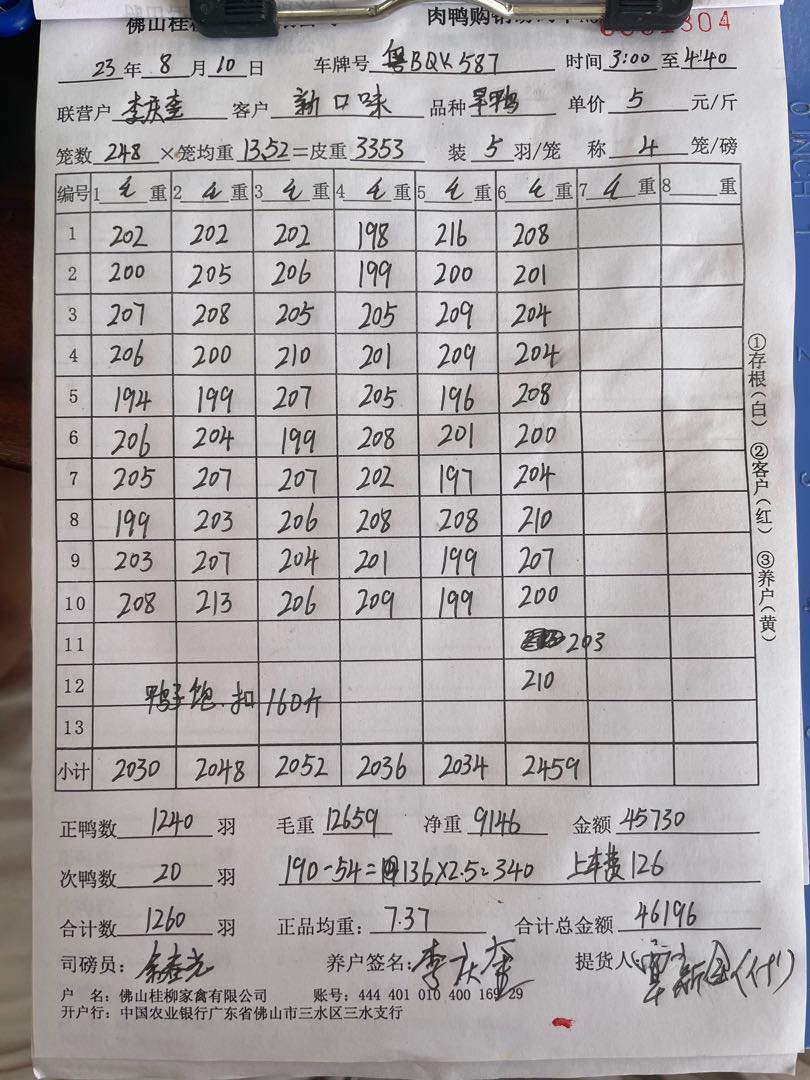 佛山桂
肉鸭购销
304
23年8月10日 车牌号 粤BQK587 时间 3:00至4:40
联营户 李庆奎 客户 新口味 品种 旱鸭 单价 5 元/斤
笼数 248 ×笼均重 13.52=皮重 3353 装 5 羽/笼 称 4 笼/磅
编号 1 毛 重 2 毛 重 3 毛 重 4 毛 重 5 毛 重 6 毛 重 7 毛 重 8 重
1 202 202 202 198 216 208
2 200 205 206 199 200 201
3 207 208 205 205 209 204
4 206 200 210 201 209 204
5 194 199 207 205 196 208
6 206 204 199 208 201 200
7 205 207 207 202 197 204
8 199 203 206 208 208 210
9 203 207 204 201 199 207
10 208 213 206 209 199 200
11 203
12 210
鸭子饱.扣160斤
13
小计 2030 2048 2052 2036 2034 2459
①存根(白) ②客户(红) ③养户(黄)
正鸭数 1240 羽 毛重 12659 净重 9146 金额 45730
次鸭数 20 羽 190-54=136×2.5=340 上车费126
合计数 1260 羽 正品均重: 7.37 合计总金额 46196
司磅员: 养户签名: 李庆奎 提货人: (付)
户 名: 佛山桂柳家禽有限公司 账号: 444 401 010 400 169 29
开户行: 中国农业银行广东省佛山市三水区三水支行